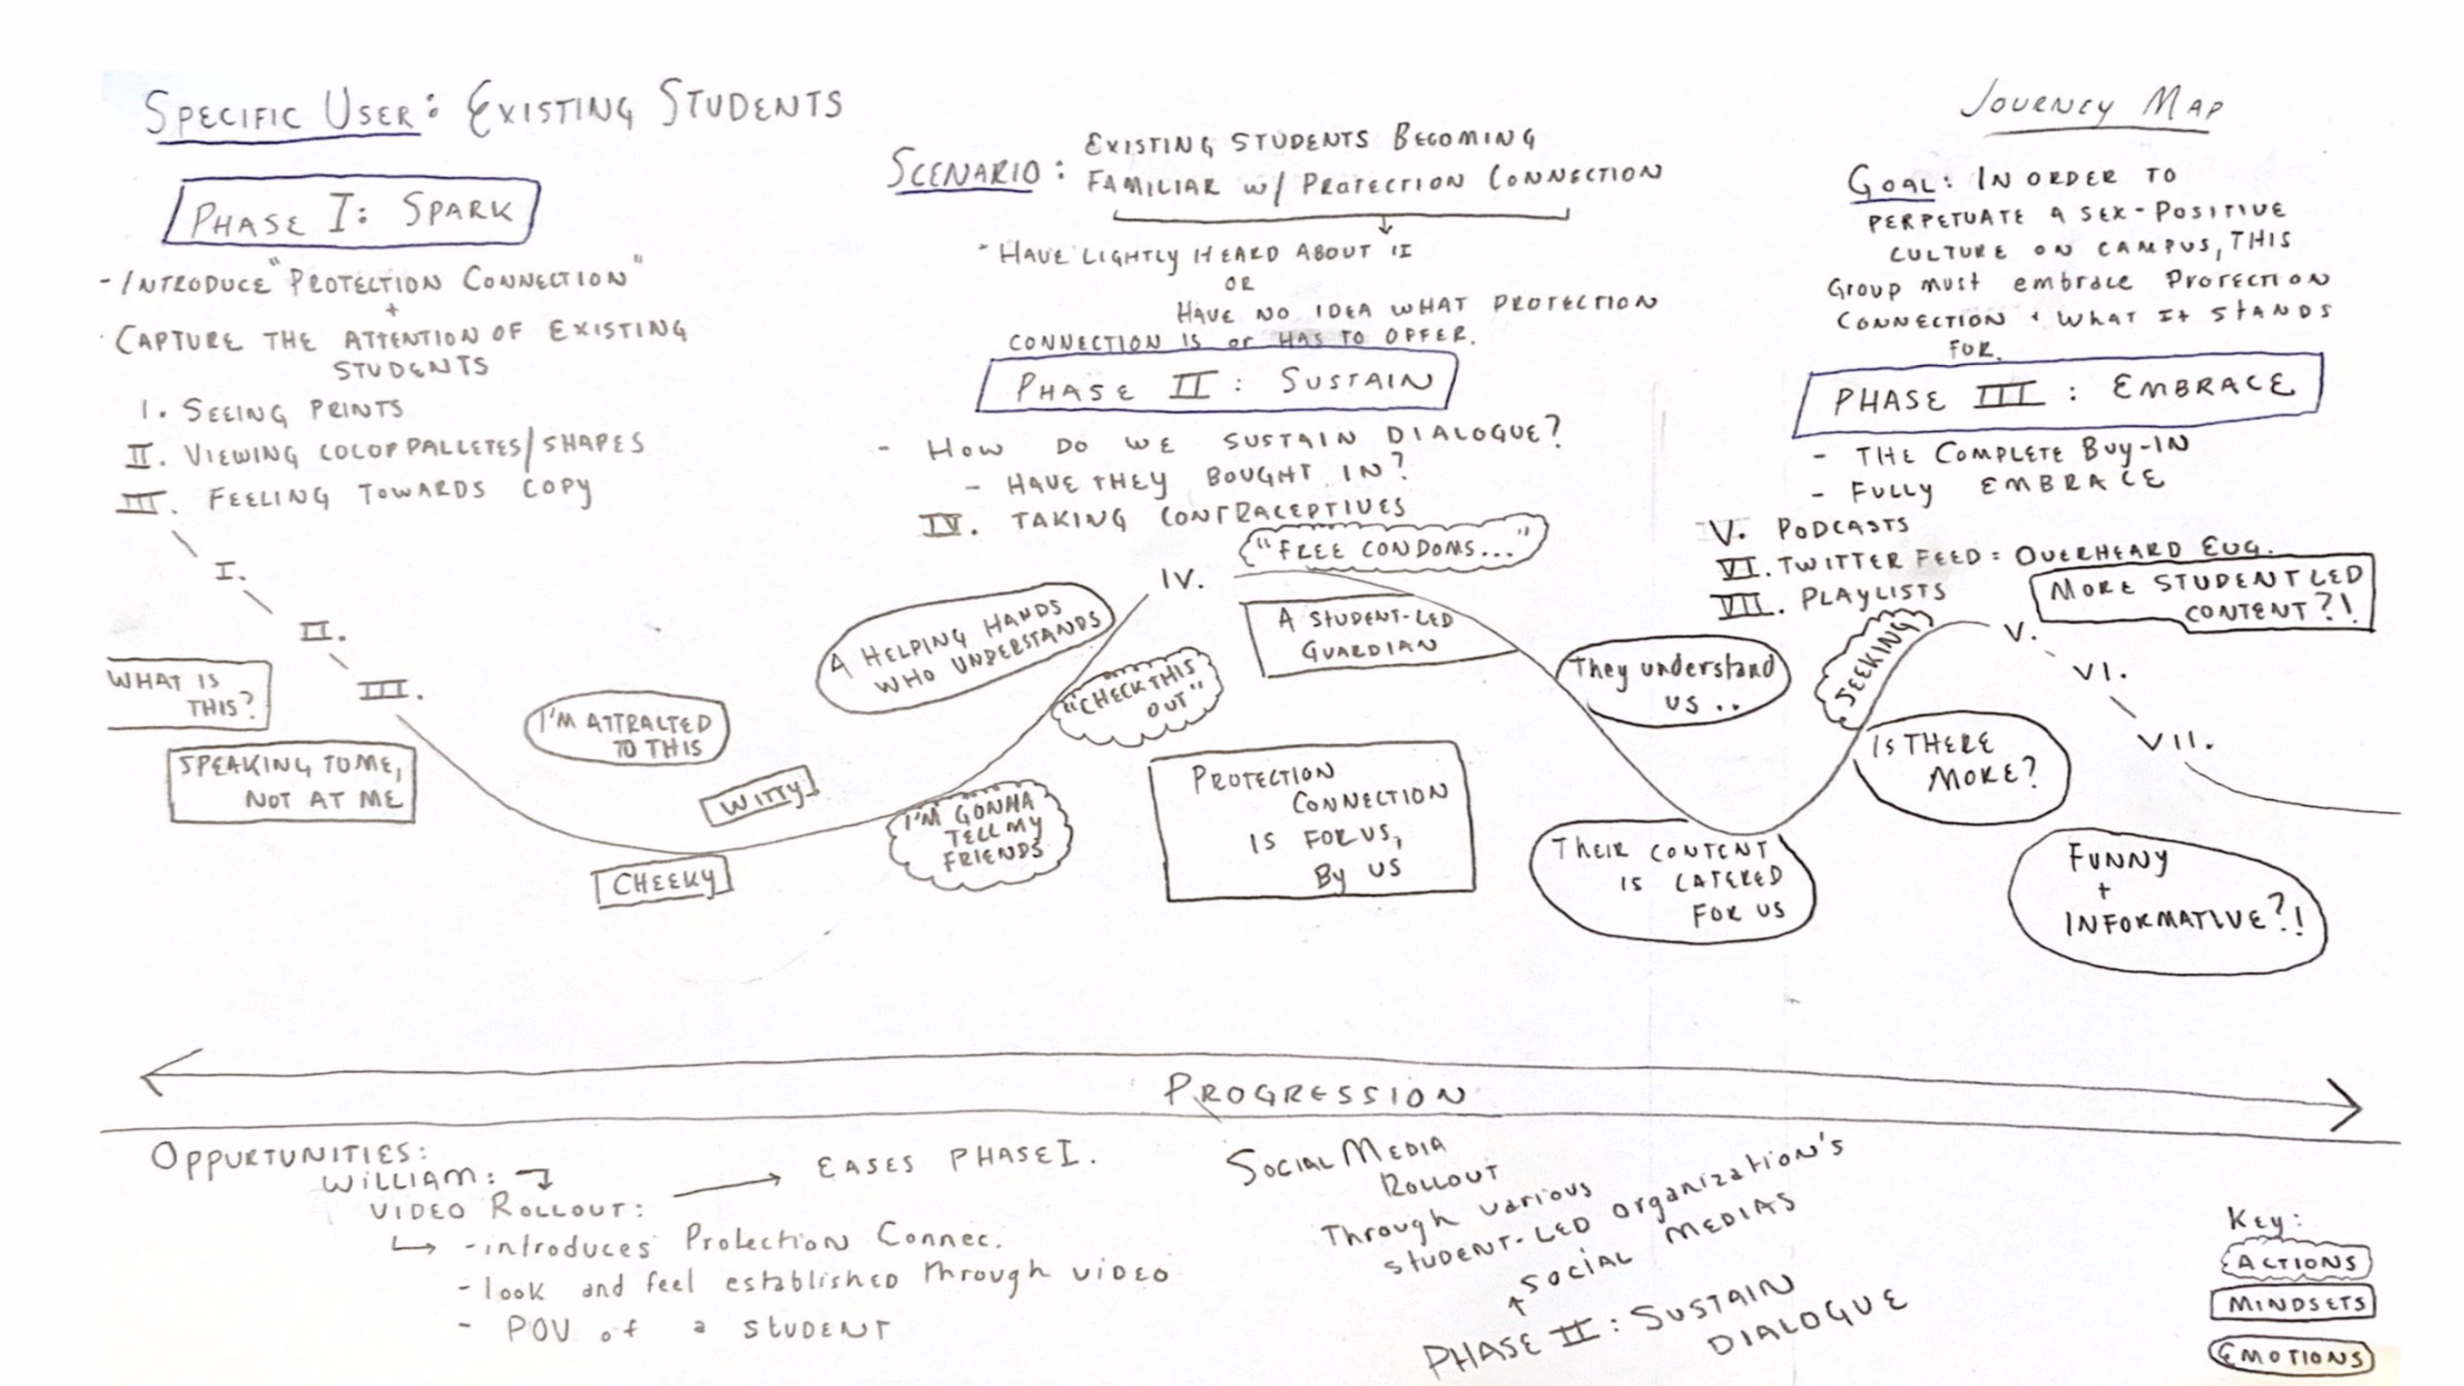 SPECIFIC USER: EXISTING STUDENTS
PHASE I: SPARK
- INTRODUCE "PROTECTION CONNECTION"
+
- CAPTURE THE ATTENTION OF EXISTING
STUDENTS
I. SEEING PRINTS
II. VIEWING COLOR PALLETES/SHAPES
III. FEELING TOWARDS COPY
SCENARIO: EXISTING STUDENTS BECOMING
FAMILIAR W/ PROTECTION CONNECTION
- HAVE LIGHTLY HEARD ABOUT IT
OR
HAVE NO IDEA WHAT PROTECTION
CONNECTION IS or HAS TO OFFER.
PHASE II: SUSTAIN
- HOW DO WE SUSTAIN DIALOGUE?
- HAVE THEY BOUGHT IN?
IV. TAKING CONTRACEPTIVES
JOURNEY MAP
GOAL: IN ORDER TO
PERPETUATE A SEX-POSITIVE
CULTURE ON CAMPUS, THIS
Group must embrace PROTECTION
CONNECTION + WHAT IT STANDS
FOR.
PHASE III: EMBRACE
- THE COMPLETE BUY-IN
- FULLY EMBRACE
V. PODCASTS
VI. TWITTER FEED = OVERHEARD EUG.
VII. PLAYLISTS
I.
II.
III.
WHAT IS
THIS?
SPEAKING TO ME,
NOT AT ME
I'M ATTRACTED
TO THIS
WITTY
CHEEKY
A HELPING HANDS
WHO UNDERSTANDS
I'M GONNA
TELL MY
FRIENDS
"CHECK THIS
OUT"
IV.
"FREE CONDOMS..."
A STUDENT-LED
GUARDIAN
PROTECTION
CONNECTION
IS FOR US,
By US
They understand
us..
THEIR CONTENT
IS CATERED
FOR US
SEEKING
IS THERE
MORE?
MORE STUDENT LED
CONTENT?!
V.
VI.
VII.
FUNNY
+
INFORMATIVE?!
PROGRESSION
OPPURTUNITIES:
WILLIAM:
VIDEO ROLLOUT:
EASES PHASE I.
- introduces Protection Connec.
- look and feel established through VIDEO
- POV of a STUDENT
SOCIAL MEDIA
ROLLOUT
Through various
STUDENT-LED organization's
SOCIAL MEDIAS
PHASE II: SUSTAIN
DIALOGUE
KEY:
ACTIONS
MINDSETS
EMOTIONS